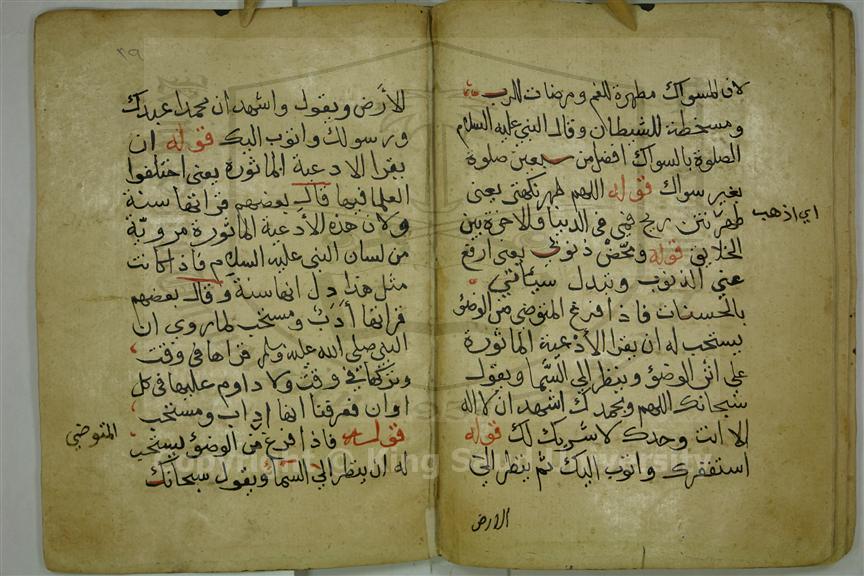 لان المسواك مطهرة للفم ومرضات للرب
ومسخطة للشيطان وقال النبي عليه السلام
الصلوة بالسواك افضل من سبعين صلوة
بغير سواك قوله اللهم طهر نكهتي يعني
طهر نتن ريح فمي في الدنيا والاخرة بين
اي اذهب
الخلايق قوله ومحّض ذنوبي يعني ارفع
عني الذنوب وتبدل سيئاتي
بالحسنات فاذا فرغ المتوضي من الوضؤ
يستحب له ان يقرا الأدعية الماثورة
على اثر الوضؤ وينظر الي السّما ويقول
سبحانك اللهم وبحمدك اشهد ان لا اله
الا انت وحدك لا شريك لك قوله
استغفرك واتوب اليك ثم ينظر الي
الارض
٣٩
للأرض ويقول واشهد ان محمدا عبدك
ورسولك واتوب اليك قوله ان
يقرا الادعية الماثورة يعني اختلفوا
العلما فيها قال بعضهم قراتها سنة
ولان هذه الأدعية الماثورة مرويّة
من لسان النبي عليه السلام فاذا كانت
مثل هذا دل انها سنة وقال بعضهم
قراتها أدب ومستحب لما روي ان
النبي صلي الله عليه وسلم قراها في وقت
وتركها في وقت ولا داوم عليها في كل
اوان فعرفنا انها اداب ومستحب
قوله فاذا فرغ من الوضؤ يستحب
المتوضي
له ان ينظر الي السما ويقول سبحانك
Copyright © King Saud University